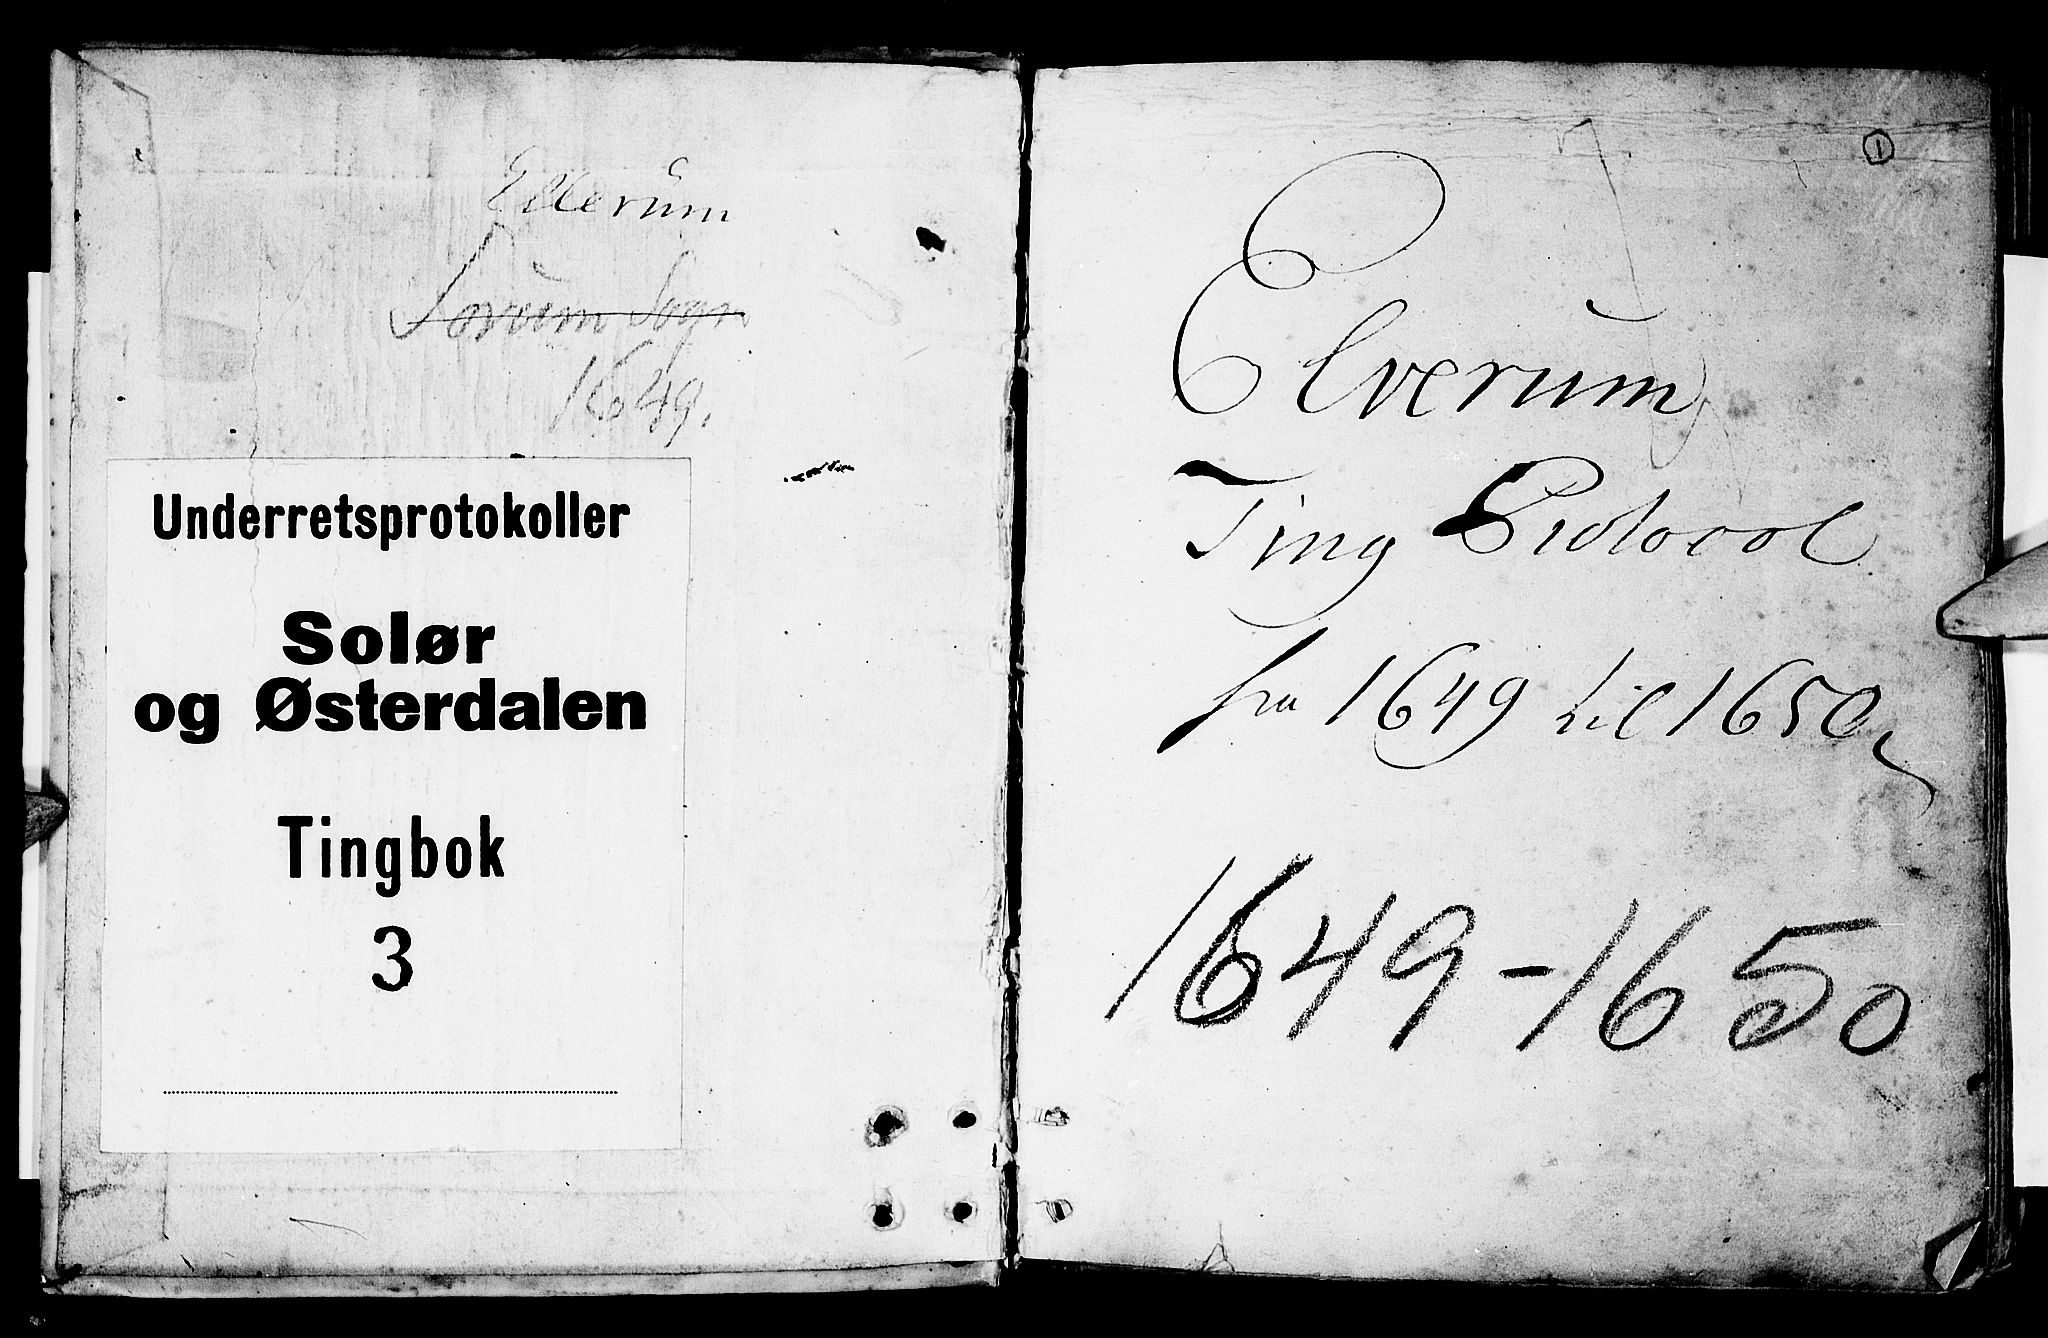 Ellerum
Sorum Sogn
1649.
Underretsprotokoller
Solør
og Østerdalen
Tingbok
3
1
Elverum
Ting Protocol
fra 1649 til 1650
1649-1650